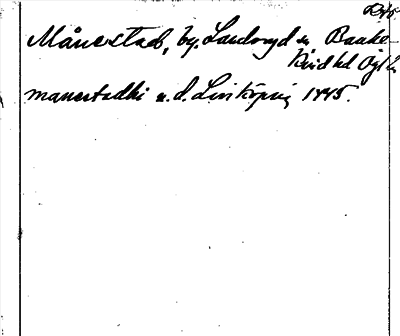 Månestad, by, Landeryd sn Banke-
kind hd Ögl.
manestadhi u. d. Linköpung 1445.